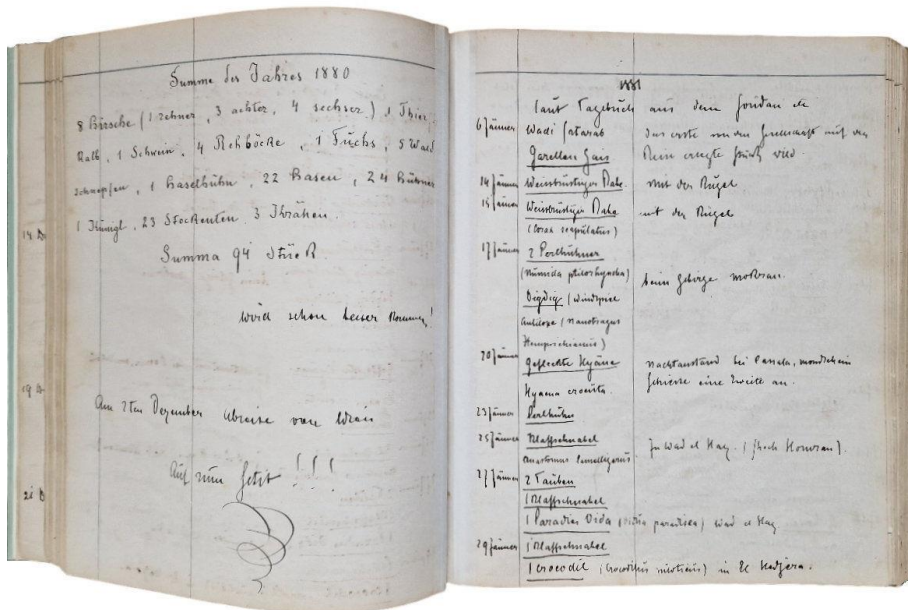 Summe des Jahres 1880
8 Hirsche (1 zehner, 3 achter, 4 sechser) 1 Thier,
Kalb, 1 Schwein, 4 Rehböcke, 1 Fuchs, 5 Wald
schnepfen, 1 Haselhuhn, 22 Hasen, 24 Hühner
1 Künigl, 23 Stockenten 3 Krähen.
Summa 94 Stück
Wird schon besser kommen!
Am 7ten Dezember Abreise von Wien
Auf zum !!!
14
19
21
1881
laut Tagebuch aus dem Soudan etc
6 Jänner Wadi das erste von der Gesellschaft auf der
Gazellen Gais Reise erlegte Stück Wild
14 Jänner Weissbrüstiger Rabe. mit der Kugel.
15 Jänner Weissbrüstiger Rabe mit der Kugel
(Corax scapulatus)
17 Jänner 2 Perlhühner
(Numida ptilorhyncha) beim Gebirge Mokram.
Digdig (Windspiel
Antilope (Nanotragus
Hemprichianus)
20 Jänner Gefleckte Hyäne Nachtanstand bei Cassala, Mondschein
Hyaena crocuta. schiesse eine Zweite an.
23 Jänner Perlhuhn
25 Jänner Klaffschnabel Zu Wad el Hag. (Homran).
Anastomus lamelligerus
27 Jänner 2 Tauben
1 Klaffschnabel
1 Paradies Vida (Vidua paradisea) Wad el Hag
29 Jänner 1 Klaffschnabel
1 Crocodil (Crocodilus niloticus) in El Hedjera.